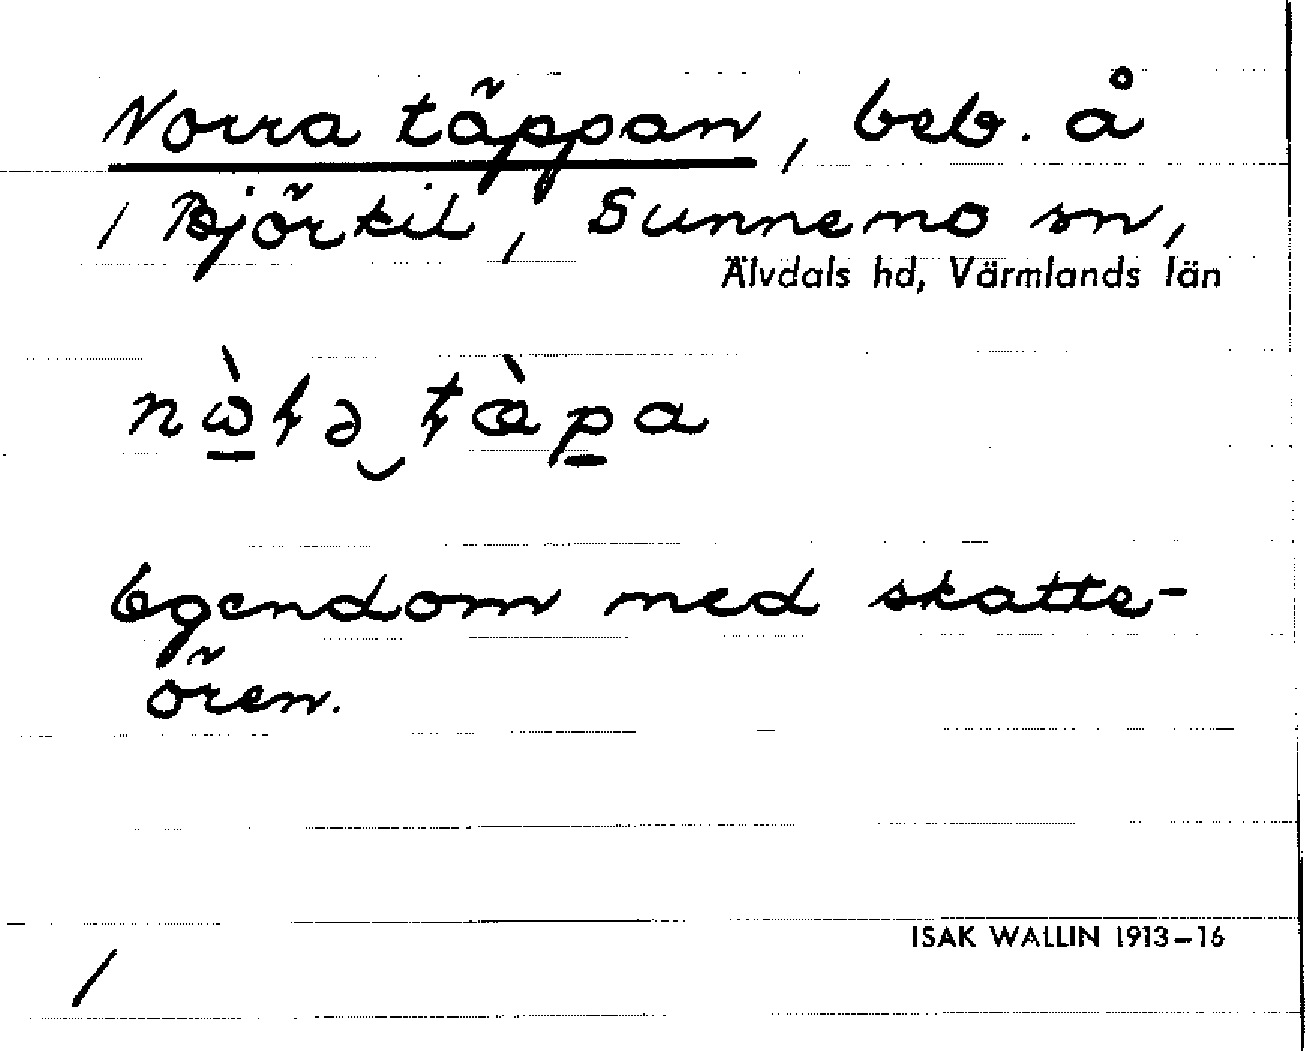 Norra täppan, beb. å
1 Björkil, Sunnemo sn,
Älvdals hd, Värmlands län
Egendom med skatte-
ören.
ISAK WALLIN 1913–16
1